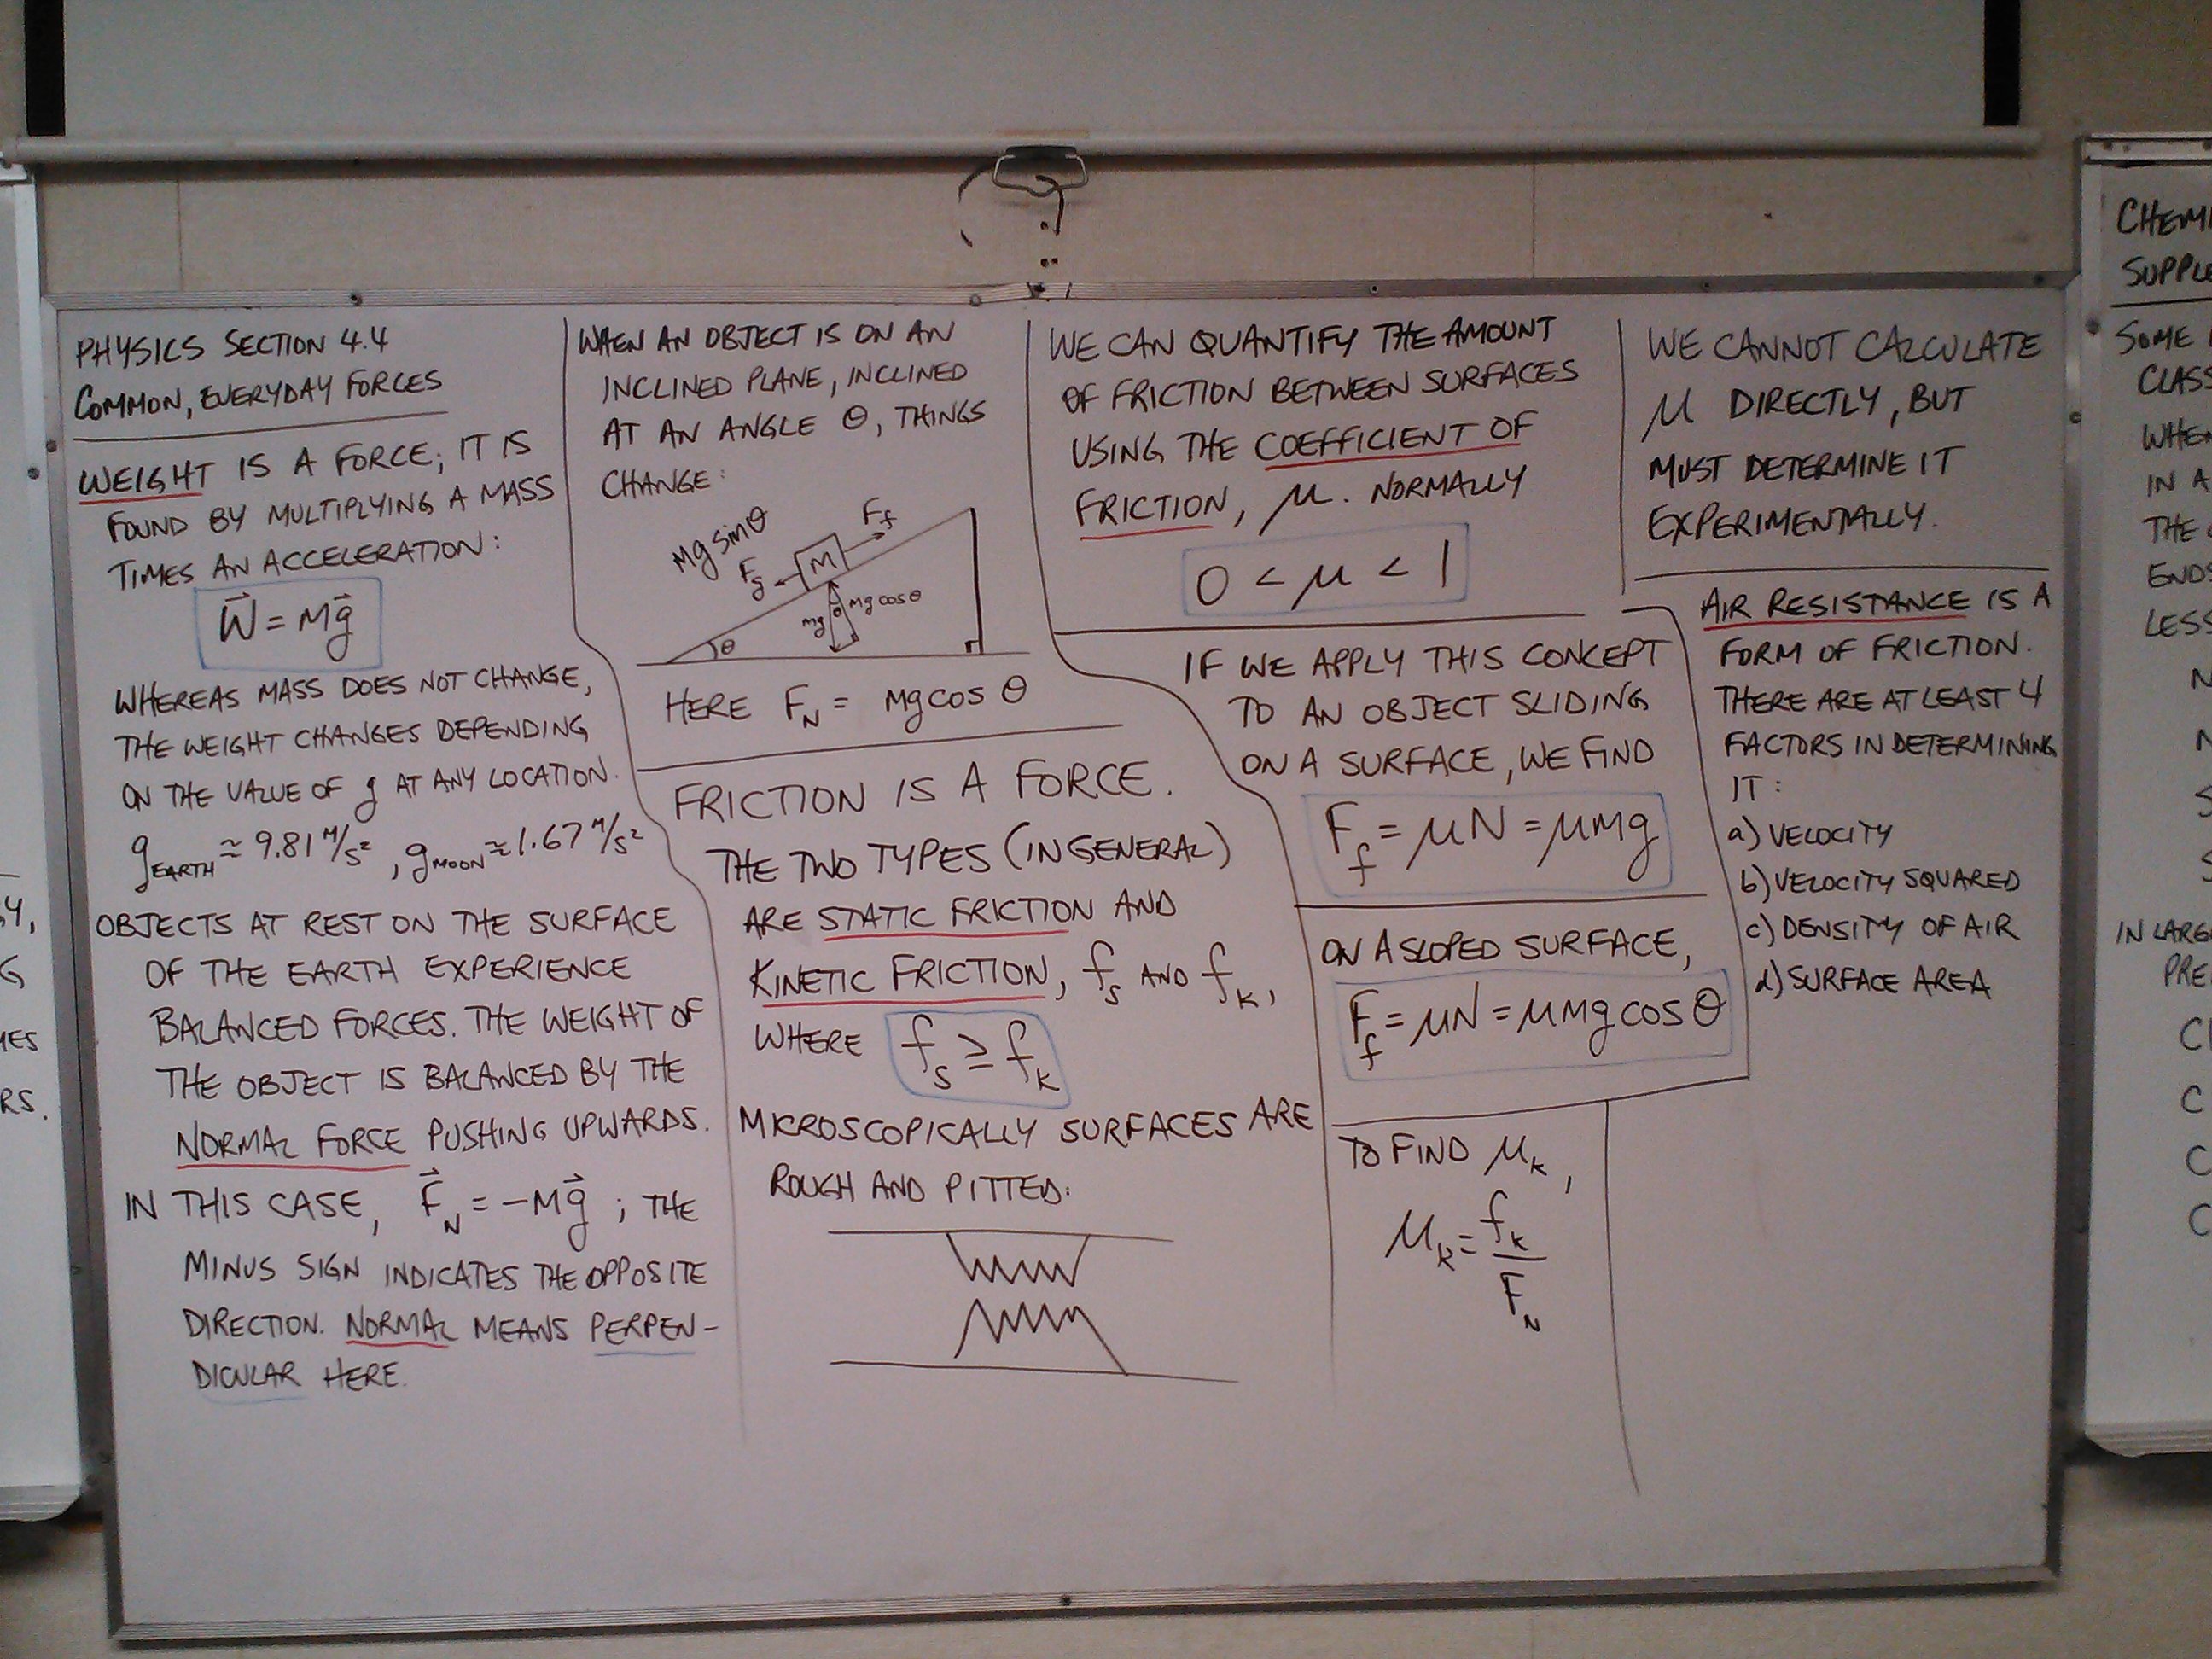 PHYSICS SECTION 4.4
COMMON, EVERYDAY FORCES
WEIGHT IS A FORCE; IT IS
FOUND BY MULTIPLYING A MASS
TIMES AN ACCELERATION:
W⃗ = mg⃗
WHEREAS MASS DOES NOT CHANGE,
THE WEIGHT CHANGES DEPENDING
ON THE VALUE OF g AT ANY LOCATION.
g EARTH ≈ 9.81 m/s², g MOON ≈ 1.67 m/s²
OBJECTS AT REST ON THE SURFACE
OF THE EARTH EXPERIENCE
BALANCED FORCES. THE WEIGHT OF
THE OBJECT IS BALANCED BY THE
NORMAL FORCE PUSHING UPWARDS.
IN THIS CASE, F⃗_N = -mg⃗ ; THE
MINUS SIGN INDICATES THE OPPOSITE
DIRECTION. NORMAL MEANS PERPEN-
DICULAR HERE.
WHEN AN OBJECT IS ON AN
INCLINED PLANE, INCLINED
AT AN ANGLE θ, THINGS
CHANGE:
mg sinθ
F_f
F_g
M
θ
mg cosθ
mg
θ
HERE F_N = mg cos θ
FRICTION IS A FORCE.
THE TWO TYPES (IN GENERAL)
ARE STATIC FRICTION AND
KINETIC FRICTION, f_s AND f_k,
WHERE f_s ≥ f_k
MICROSCOPICALLY SURFACES ARE
ROUGH AND PITTED:
WE CAN QUANTIFY THE AMOUNT
OF FRICTION BETWEEN SURFACES
USING THE COEFFICIENT OF
FRICTION, μ. NORMALLY
0 < μ < 1
IF WE APPLY THIS CONCEPT
TO AN OBJECT SLIDING
ON A SURFACE, WE FIND
F_f = μN = μmg
ON A SLOPED SURFACE,
F_f = μN = μmg cos θ
TO FIND μ_k,
μ_k = f_k / F_N
WE CANNOT CALCULATE
μ DIRECTLY, BUT
MUST DETERMINE IT
EXPERIMENTALLY.
AIR RESISTANCE IS A
FORM OF FRICTION.
THERE ARE AT LEAST 4
FACTORS IN DETERMINING
IT:
a) VELOCITY
b) VELOCITY SQUARED
c) DENSITY OF AIR
d) SURFACE AREA
SOME
CLASS
IN A
THE
ENDS
LESS